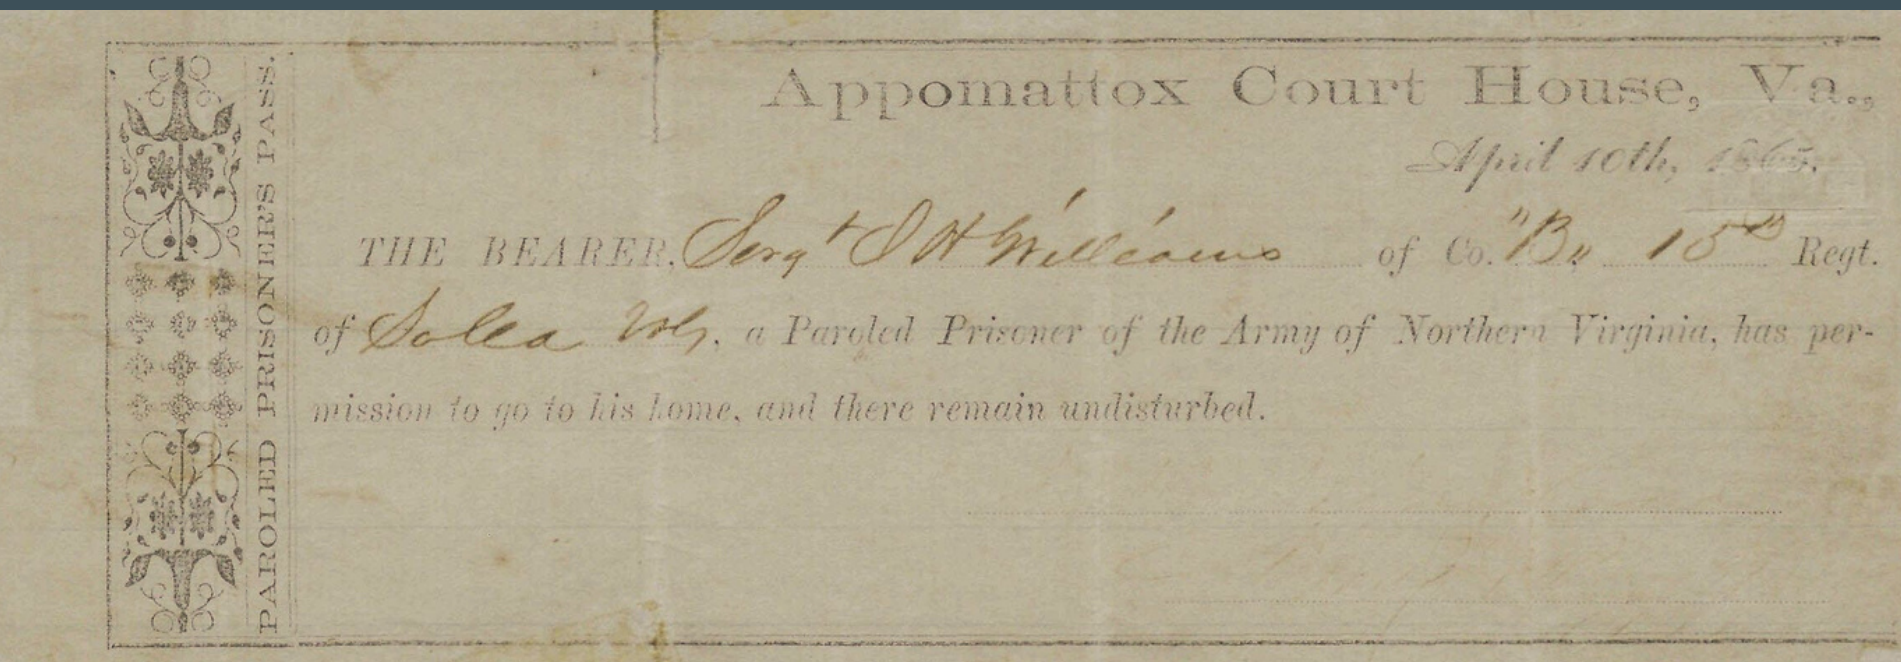 PAROLED PRISONER'S PASS.
Appomattox Court House, Va.,
April 10th, 1865.
THE BEARER, Sergt S H Williams of Co. "B" 15th Regt.
of Vols, a Paroled Prisoner of the Army of Northern Virginia, has per-
mission to go to his home, and there remain undisturbed.